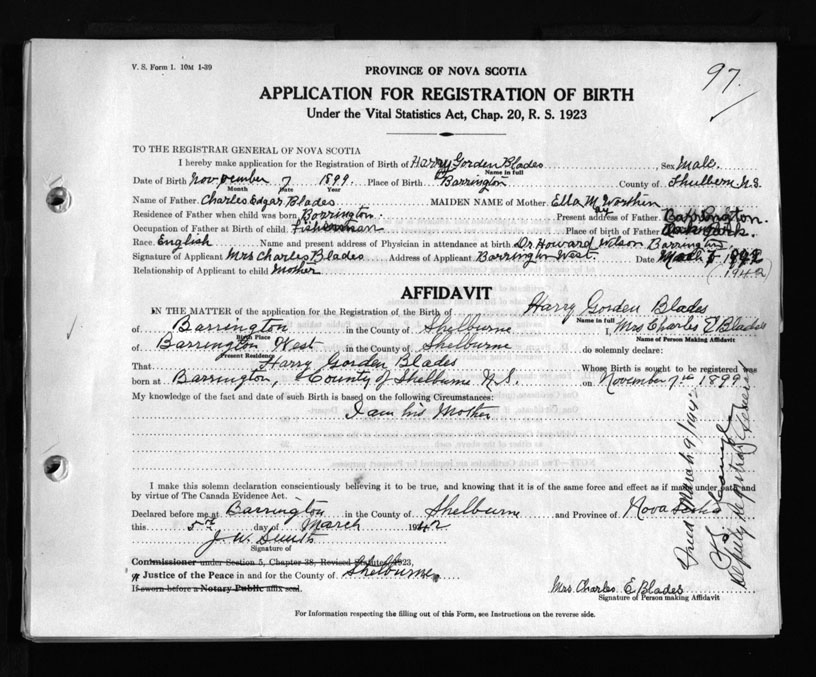 V. S. Form 1. 10M 1-39
97.
PROVINCE OF NOVA SCOTIA
APPLICATION FOR REGISTRATION OF BIRTH
Under the Vital Statistics Act, Chap. 20, R. S. 1923
TO THE REGISTRAR GENERAL OF NOVA SCOTIA
I hereby make application for the Registration of Birth of Harry Gorden Blades Sex Male.
Name in full
Date of Birth November 7 1899. Place of Birth at Barrington County of Shulbern N.S.
Month Day Year
Name of Father Charles Edgar Blades MAIDEN NAME of Mother Ella M. Worthin
Residence of Father when child was born Borrington. Present address of Father Barrington.
Occupation of Father at Birth of child. Fisherman Place of birth of Father Oak Park.
Race. English Name and present address of Physician in attendance at birth Dr Howard Wilson Barrington.
Signature of Applicant Mrs Charles Blades Address of Applicant Barrington West. Date March 5 1892
(1942)
Relationship of Applicant to child Mother
AFFIDAVIT
IN THE MATTER of the application for the Registration of the Birth of Harry Gorden Blades
Name in full
of Barrington in the County of Shelburne I, Mrs Charles E Blades
Birth Place
Name of Person Making Affidavit
of Barrington West in the County of Shelburne do solemnly declare:
Present Residence
That Harry Gorden Blades Whose Birth is sought to be registered was
born at Barrington, County of Shelburne N.S. on November 7th 1899
My knowledge of the fact and date of such Birth is based on the following Circumstances:
I am his Mother
I make this solemn declaration conscientiously believing it to be true, and knowing that it is of the same force and effect as if made under oath and
by virtue of The Canada Evidence Act.
Declared before me at Barrington in the County of Shelburne and Province of Nova Scotia
this 5th day of March 1942
J. W.
Signature of
Commissioner under Section 5, Chapter 38, Revised Statutes 1923,
Justice of the Peace in and for the County of Shelburne
If sworn before a Notary Public affix seal.
Mrs. Charles E Blades
Signature of Person making Affidavit
For Information respecting the filling out of this Form, see Instructions on the reverse side.
March 9/1942
Deputy Registrar General